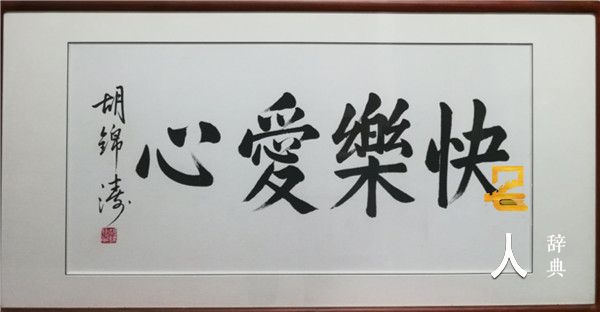 快樂愛心
胡錦濤
名人
辞典